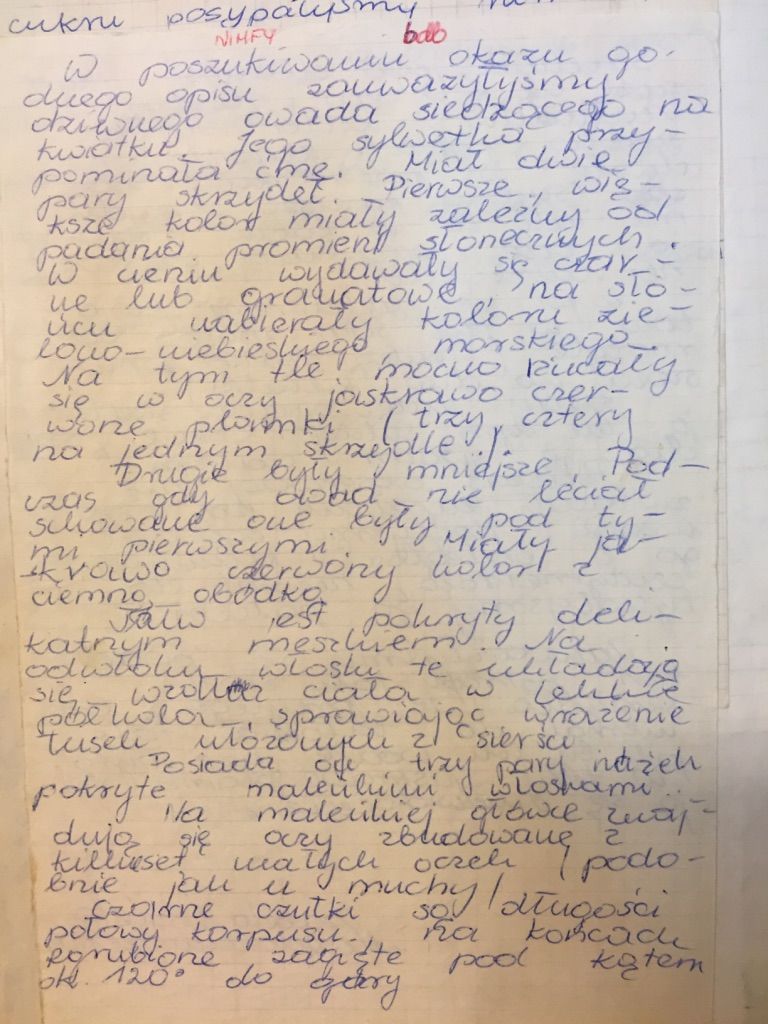 cukru posypałyśmy
NIMFY bdb
W poszukiwaniu okazu go-
dnego opisu zauważyłyśmy
dziwnego owada siedzącego na
kwiatku. Jego sylwetka przy-
pominała ćmę. Miał dwie
pary skrzydeł. Pierwsze, wię-
ksze kolor miały zależny od
padania promieni słonecznych.
W cieniu wydawały się czar-
ne lub granatowe, na sło-
ńcu nabierały koloru zie-
lono-niebieskiego, morskiego.
Na tym tle mocno rzucały
się w oczy jaskrawo czer-
wone plamki (trzy, cztery
na jednym skrzydle).
Drugie były mniejsze. Pod-
czas gdy owad nie leciał
schowane one były pod ty-
mi pierwszymi. Miały ja-
skrawo czerwony kolor z
ciemną obódką
jest pokryty deli-
katnym meszkiem. Na
odwłoku włoski te układają
się wzdłuż ciała w lekkie
półkola, sprawiając wrażenie
łusek ułożonych z sierści
Posiada on trzy pary nóżek
pokryte maleńkimi włoskami.
Na maleńkiej główce znaj-
dują się oczy zbudowane z
kilkuset małych oczek (podo-
bnie jak u muchy)
Czarne czułki są długości
połowy korpusu. Na końcach
zgrubione zagięte pod kątem
ok. 120° do góry